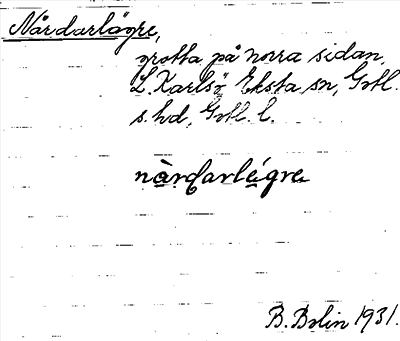 Nårdarlägre,
grotta på norra sidan
L. Karlsö, Eksta sn, Gotl.
s. hd, Gotl. l.
nàrdarlégre
B. Bolin 1931.